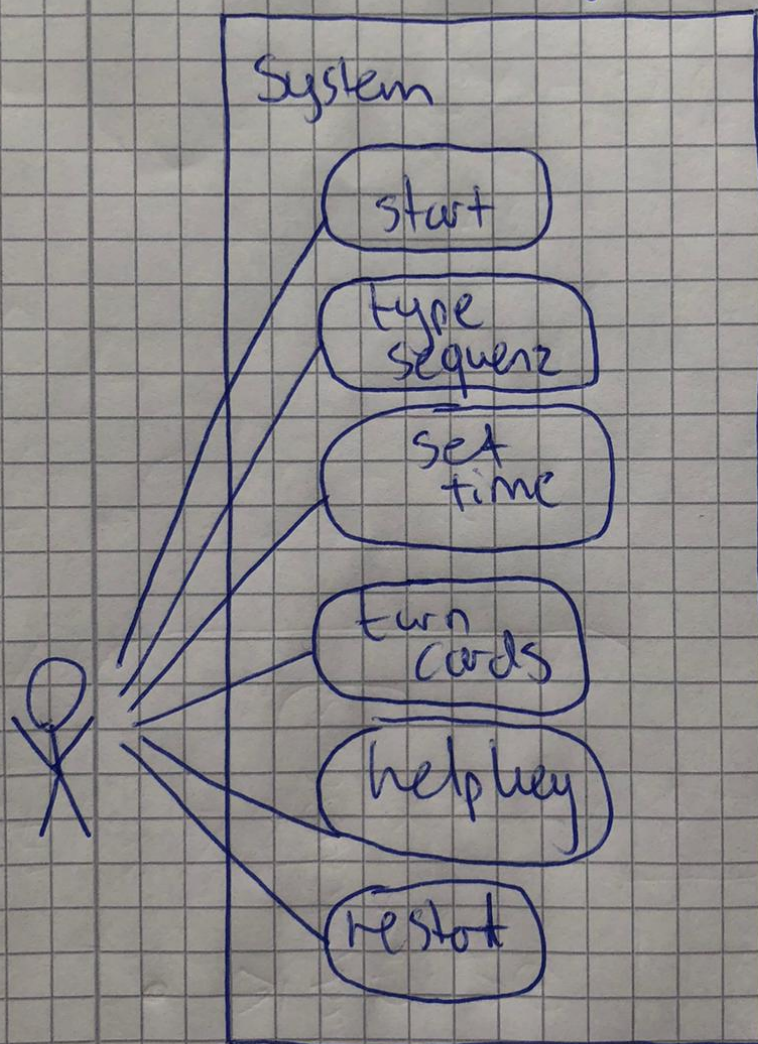 System
start
type
sequenz
set
time
turn
cards
help key
restart